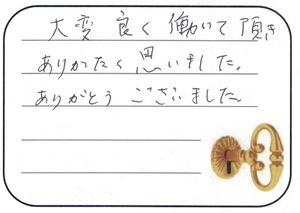 大変良く働いて頂き
ありがたく思いました。
ありがとうございました